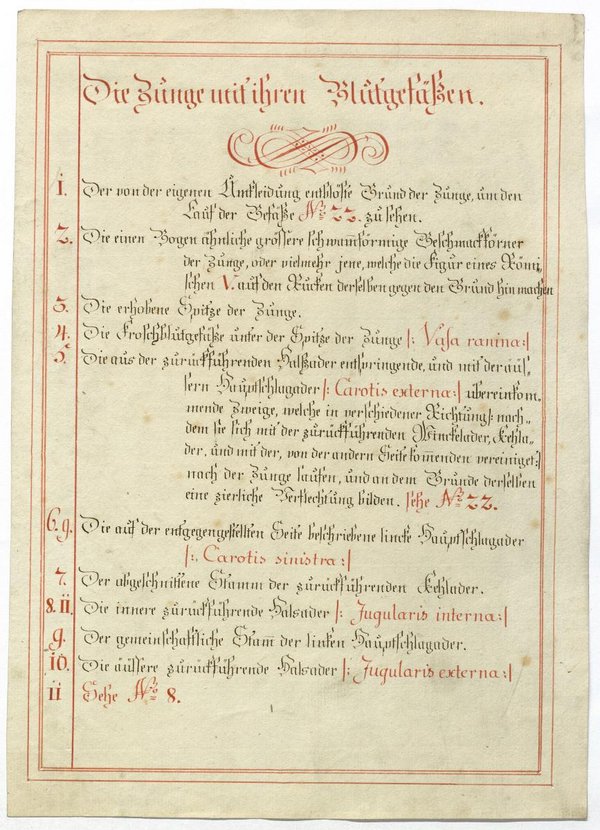 Die Zunge mit ihren Blutgefäßen.
1. Der von der eigenen Umkleidung entblöste Grund der Zunge, um den
Lauf der Gefäße No 22. zu sehen.
2. Die einen Bogen ähnliche grössere schwamförmige Geschmackkörner
der Zunge, oder vielmehr jene, welche die Figur eines Römi„
schen V. auf den Rücken derselben gegen den Grund hin machen
3. Die erhobene Spitze der Zunge.
4. Die Froschblutgefäße unter der Spitze der Zunge |: Vasa ranina:|
5. Die aus der zurückführenden Halßader entspringende, und mit der äus„
sern Hauptschlagader |: Carotis externa:| übereinkom„
mende Zweige, welche in verschiedener Richtung|: nach„
dem sie sich mit der zurückführenden Winckelader, Kehla„
der, und mit der, von der andern Seite kommenden vereiniget:|
nach der Zunge laufen, und an dem Grunde derselben
eine zierliche Verflechtung bilden. sehe No 22.
6. 9. Die auf der entgegengestellten Seite beschriebene lincke Hauptschlagader
|: Carotis sinistra:|
7. Der abgeschnittene Stamm der zurückführenden Kehlader.
8. 11. Die innere zurückführende Halsader |: Jugularis interna:|
9. Der gemeinschaftliche Stam̄ der linken Hauptschlagader.
10. Die äussere zurückführende Halsader |: Jugularis externa:|
11 Sehe No 8.